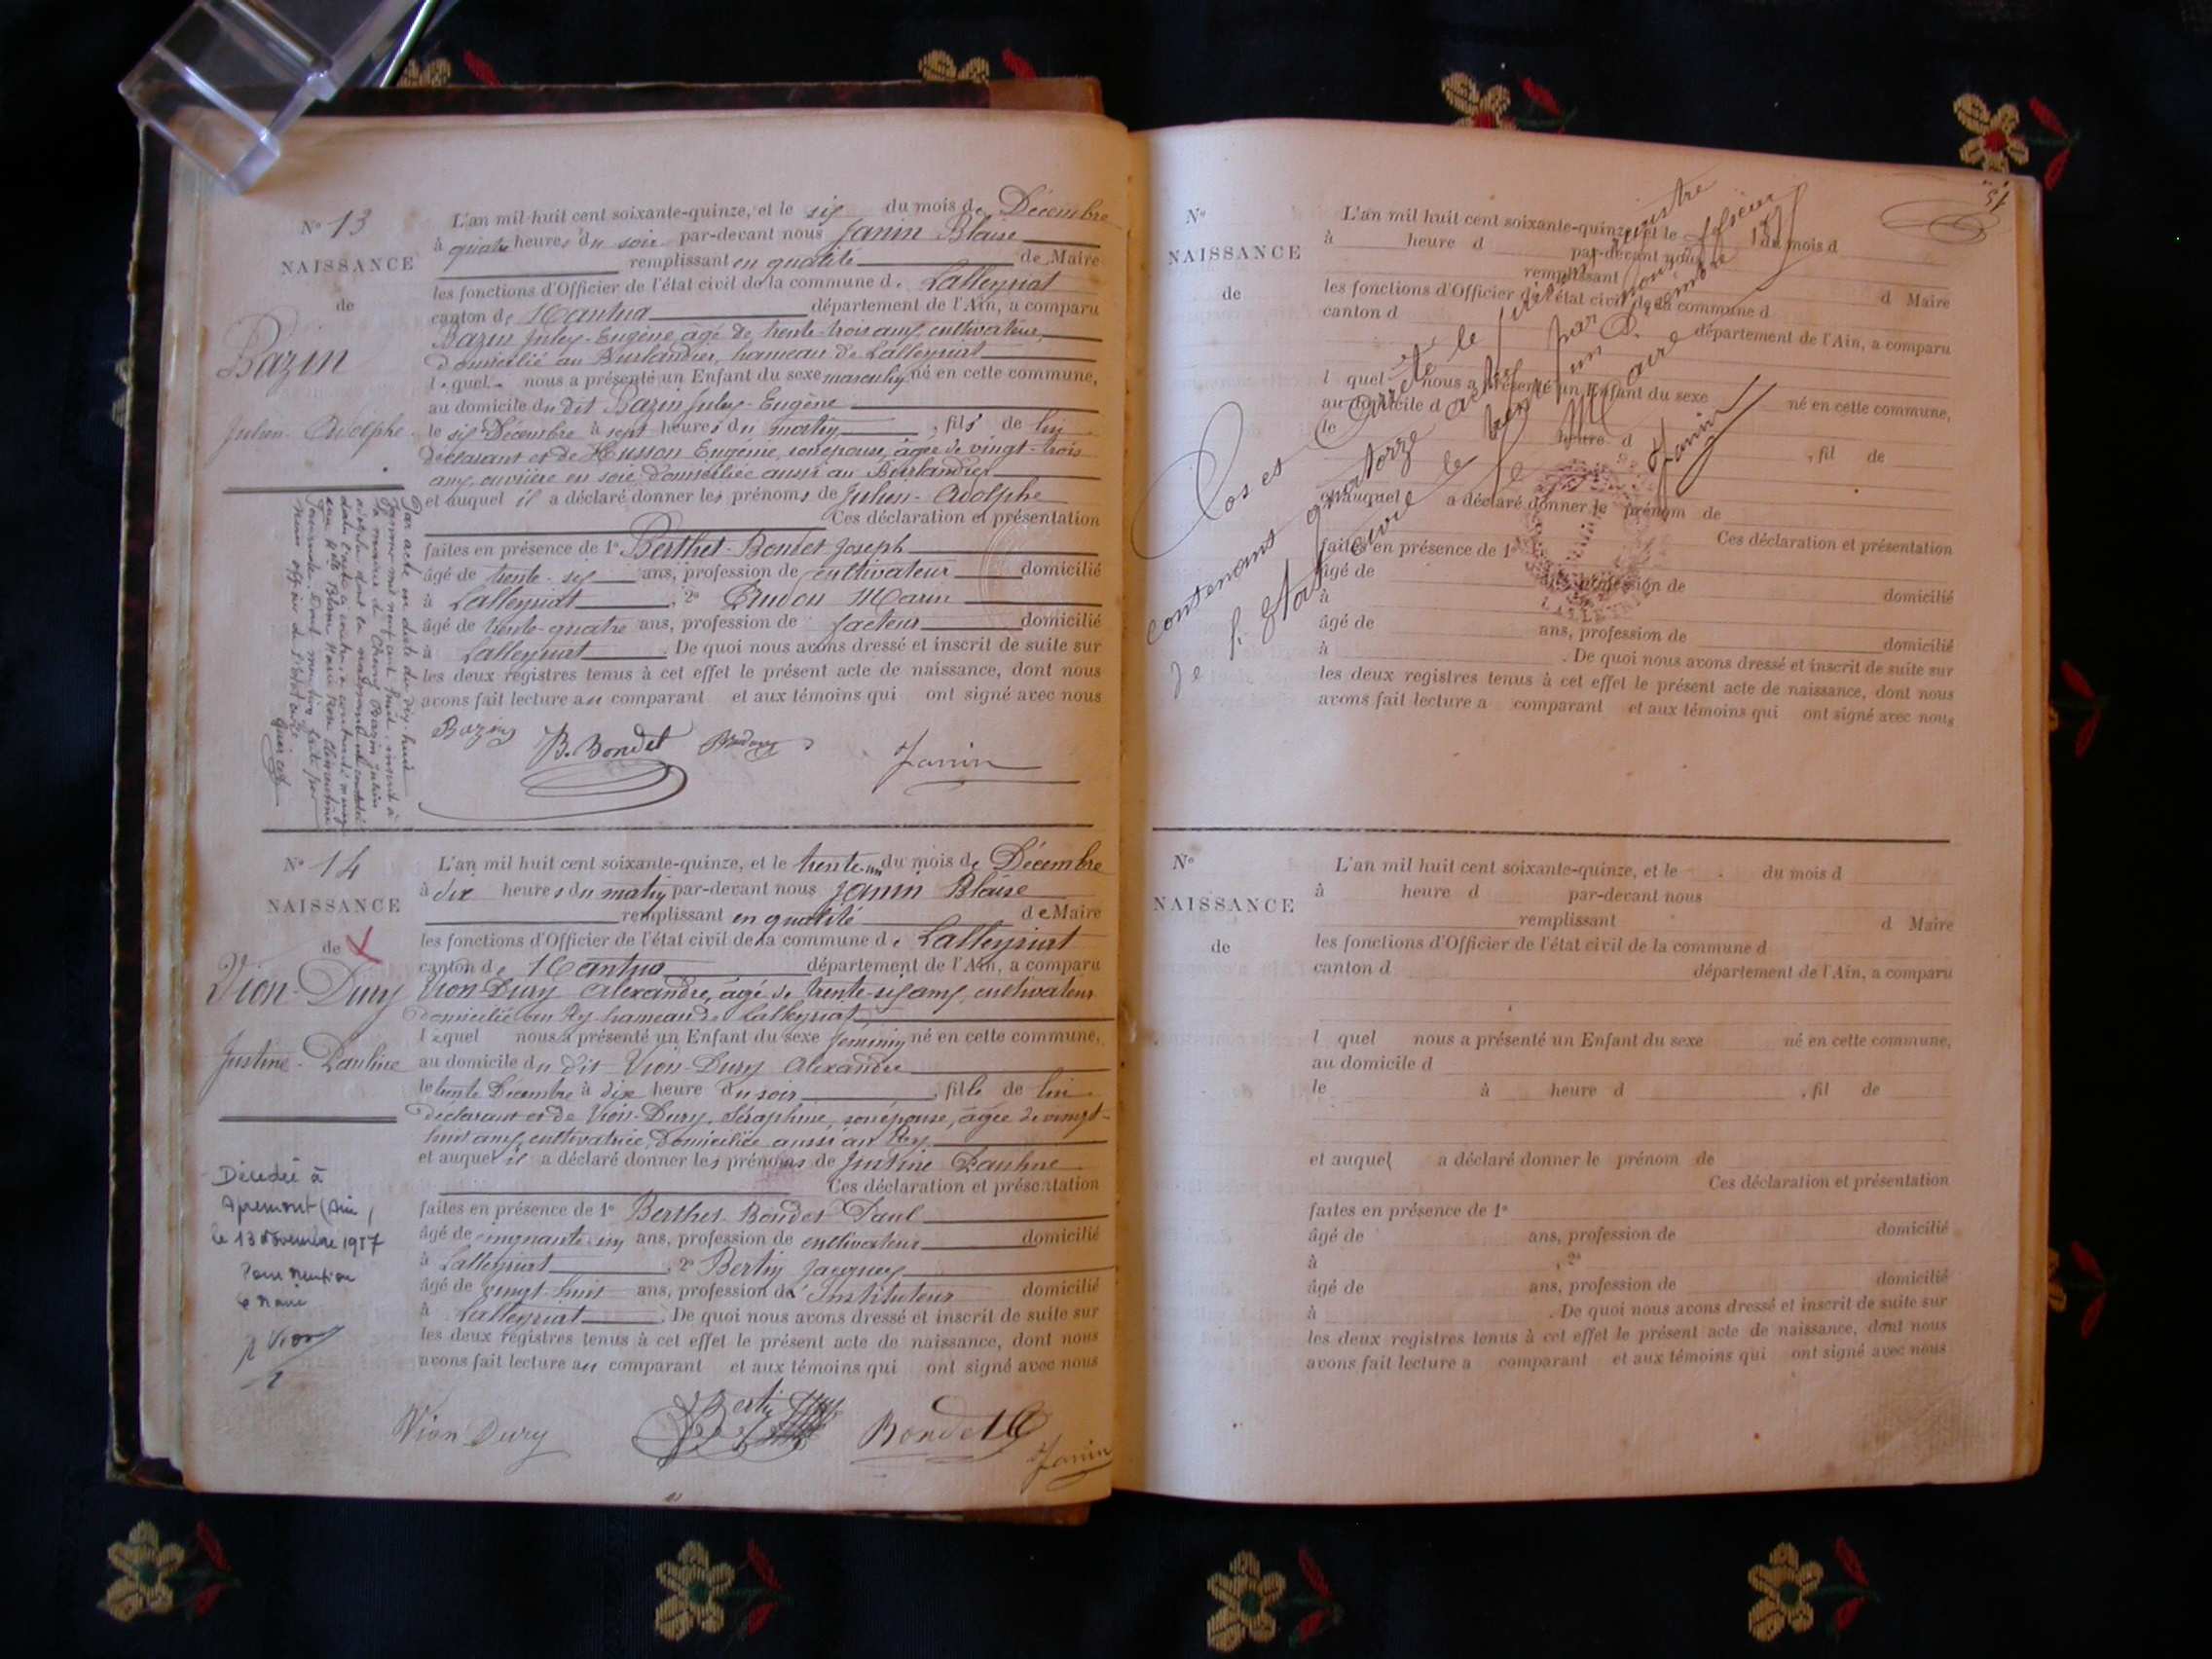 N° 13
NAISSANCE
de
Bazin
Julien-Adolphe
L'an mil-huit cent soixante-quinze, et le six du mois de Décembre
à quatre heures du soir par-devant nous Janin Blaise
remplissant en qualité de Maire
les fonctions d'Officier de l'état civil de la commune de Lalleyriat
canton de Nantua département de l'Ain, a comparu
Bazin Jules-Eugène, âgé de trente-trois ans, cultivateur,
domicilié au Burlandier, hameau de Lalleyriat
lequel nous a présenté un Enfant du sexe masculin, né en cette commune,
au domicile du dit Bazin Jules-Eugène
le six Décembre à sept heures du matin, fils de lui
déclarant et de Husson Eugénie, son épouse, âgée de vingt-trois
ans, ouvrière en soie, domiciliée aussi au Burlandier
et auquel il a déclaré donner les prénoms de Julien-Adolphe
Ces déclaration et présentation
faites en présence de 1° Berthet-Bondet Joseph
âgé de trente-six ans, profession de cultivateur domicilié
à Lalleyriat, 2° Marin
âgé de trente-quatre ans, profession de facteur domicilié
à Lalleyriat. De quoi nous avons dressé et inscrit de suite sur
les deux registres tenus à cet effet le présent acte de naissance, dont nous
avons fait lecture au comparant et aux témoins qui ont signé avec nous
Bazin B. Bondet Janin
Par acte en date du dix huit
inscrit à
la mairie de Bazin Julien
Adolphe dont la naissance est constatée
dans l'acte ci-contre, a contracté mariage
avec Marie
mention faite par
Nous officier de l'état civil.
N° 14
NAISSANCE
de
Vion-Dury
Justine-Pauline
L'an mil huit cent soixante-quinze, et le trente-un du mois de Décembre
à dix heures du matin par-devant nous Janin Blaise
remplissant en qualité de Maire
les fonctions d'Officier de l'état civil de la commune de Lalleyriat
canton de Nantua département de l'Ain, a comparu
Vion-Dury Alexandre, âgé de trente-six ans, cultivateur
domicilié au hameau de Lalleyriat,
lequel nous a présenté un Enfant du sexe féminin né en cette commune,
au domicile du dit Vion-Dury Alexandre
le trente Décembre à dix heure du soir, fille de lui
déclarant et de Vion-Dury, Séraphine, son épouse, âgée de vingt-
huit ans, cultivatrice, domiciliée aussi au
et auquel il a déclaré donner les prénoms de Justine Pauline
Ces déclaration et présentation
faites en présence de 1° Berthet-Bondet Paul
âgé de cinquante-un ans, profession de cultivateur domicilié
à Lalleyriat, 2° Bertin Jacques
âgé de vingt-huit ans, profession d'Instituteur domicilié
à Lalleyriat. De quoi nous avons dressé et inscrit de suite sur
les deux registres tenus à cet effet le présent acte de naissance, dont nous
avons fait lecture au comparant et aux témoins qui ont signé avec nous
Vion Dury Bertin Bondet Janin
Décédée à
Apremont (Ain)
le 13 Novembre 1957
Pour mention
Le Maire
Vion
N°
NAISSANCE
de
L'an mil huit cent soixante-quinze, et le du mois d
à heure d par-devant nous
remplissant
d Maire
les fonctions d'Officier de l'état civil de la commune d
canton d département de l'Ain, a comparu
l quel nous a présenté un Enfant du sexe né en cette commune,
au domicile d
le heure d , fil de
et auquel a déclaré donner le prénom de
Ces déclaration et présentation
faites en présence de 1°
âgé de profession de domicilié
à
âgé de ans, profession de domicilié
à . De quoi nous avons dressé et inscrit de suite sur
les deux registres tenus à cet effet le présent acte de naissance, dont nous
avons fait lecture a comparant et aux témoins qui ont signé avec nous
Clos et Arrêté le présent registre
contenant quatorze actes par nous officier
de l'état civil le trente un Décembre 1875
Le Maire
Janin
N°
NAISSANCE
de
L'an mil huit cent soixante-quinze, et le du mois d
à heure d par-devant nous
remplissant d Maire
les fonctions d'Officier de l'état civil de la commune d
canton d département de l'Ain, a comparu
l quel nous a présenté un Enfant du sexe né en cette commune,
au domicile d
le à heure d , fil de
et auquel a déclaré donner le prénom de
Ces déclaration et présentation
faites en présence de 1°
âgé de ans, profession de domicilié
à , 2°
âgé de ans, profession de domicilié
à . De quoi nous avons dressé et inscrit de suite sur
les deux registres tenus à cet effet le présent acte de naissance, dont nous
avons fait lecture a comparant et aux témoins qui ont signé avec nous